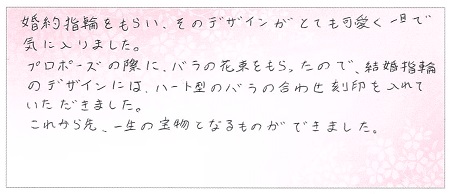 婚約指輪をもらい、そのデザインがとても可愛く一目で
気に入りました。
プロポーズの際に、バラの花束をもらったので、結婚指輪
のデザインには、ハート型のバラの合わせ刻印を入れて
いただきました。
これから先、一生の宝物となるものができました。